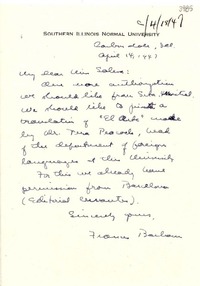 3985
4/18/47
SOUTHERN ILLINOIS NORMAL UNIVERSITY
Carbondale, Ill.
April 18, 1947
My dear Miss Salem:
One more authorization
we should like from
We should like to print a
translation of "El made
by Dr. Vera Peacock, head
of the department of foreign
languages at this University
For this we already have
permission from Barcelona
(Editorial Cervantes).
Sincerely yours,
Frances Barbour